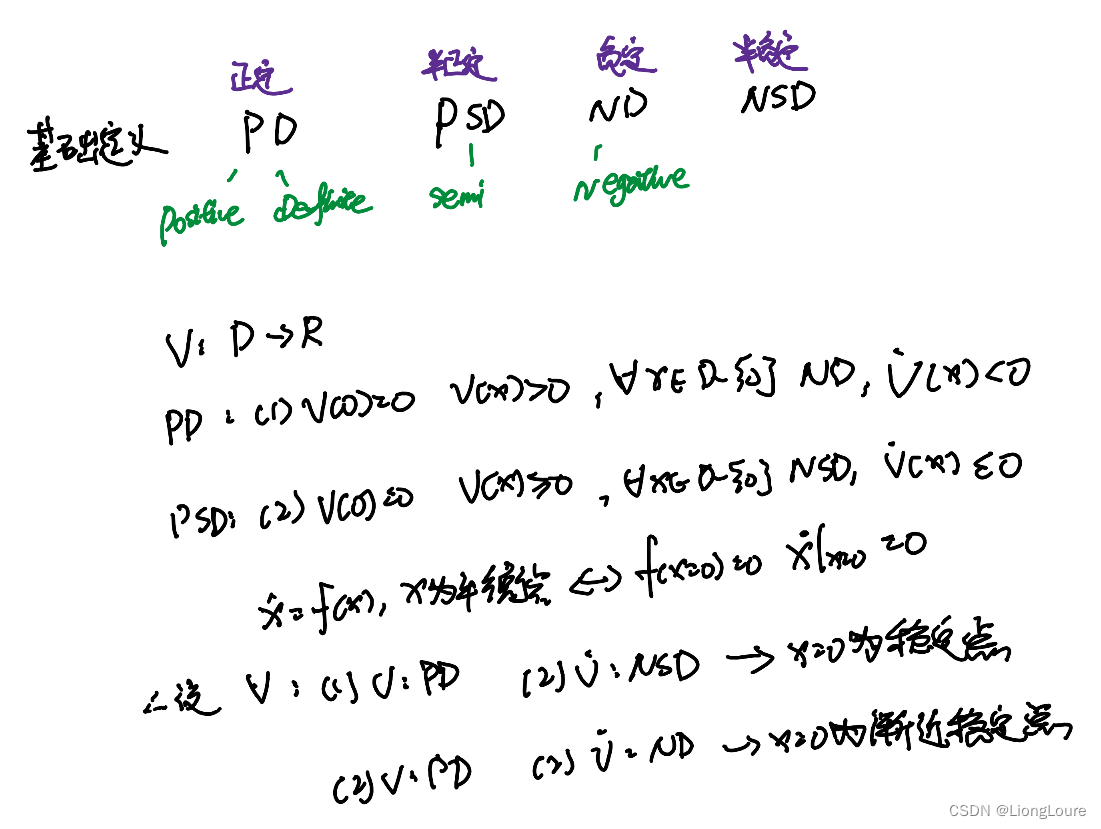 正定 半正定 负定 半负定
基础定义 PD PSD ND NSD
Positive Definite semi Negative
V: D→R
PD: (1) V(0)=0 V(x)>0, ∀x∈D-{0} ND, V̇(x)<0
PSD: (2) V(0)=0 V(x)≥0, ∀x∈D-{0} NSD, V̇(x)≤0
ẋ=f(x), x为平衡点 ↔ f(x=0)=0 ẋ|x=0 =0
V: (1) V: PD (2) V̇: NSD → x=0为稳定点
(2) V: PD (2) V̇: ND → x=0为渐近稳定点
CSDN @LiongLoure